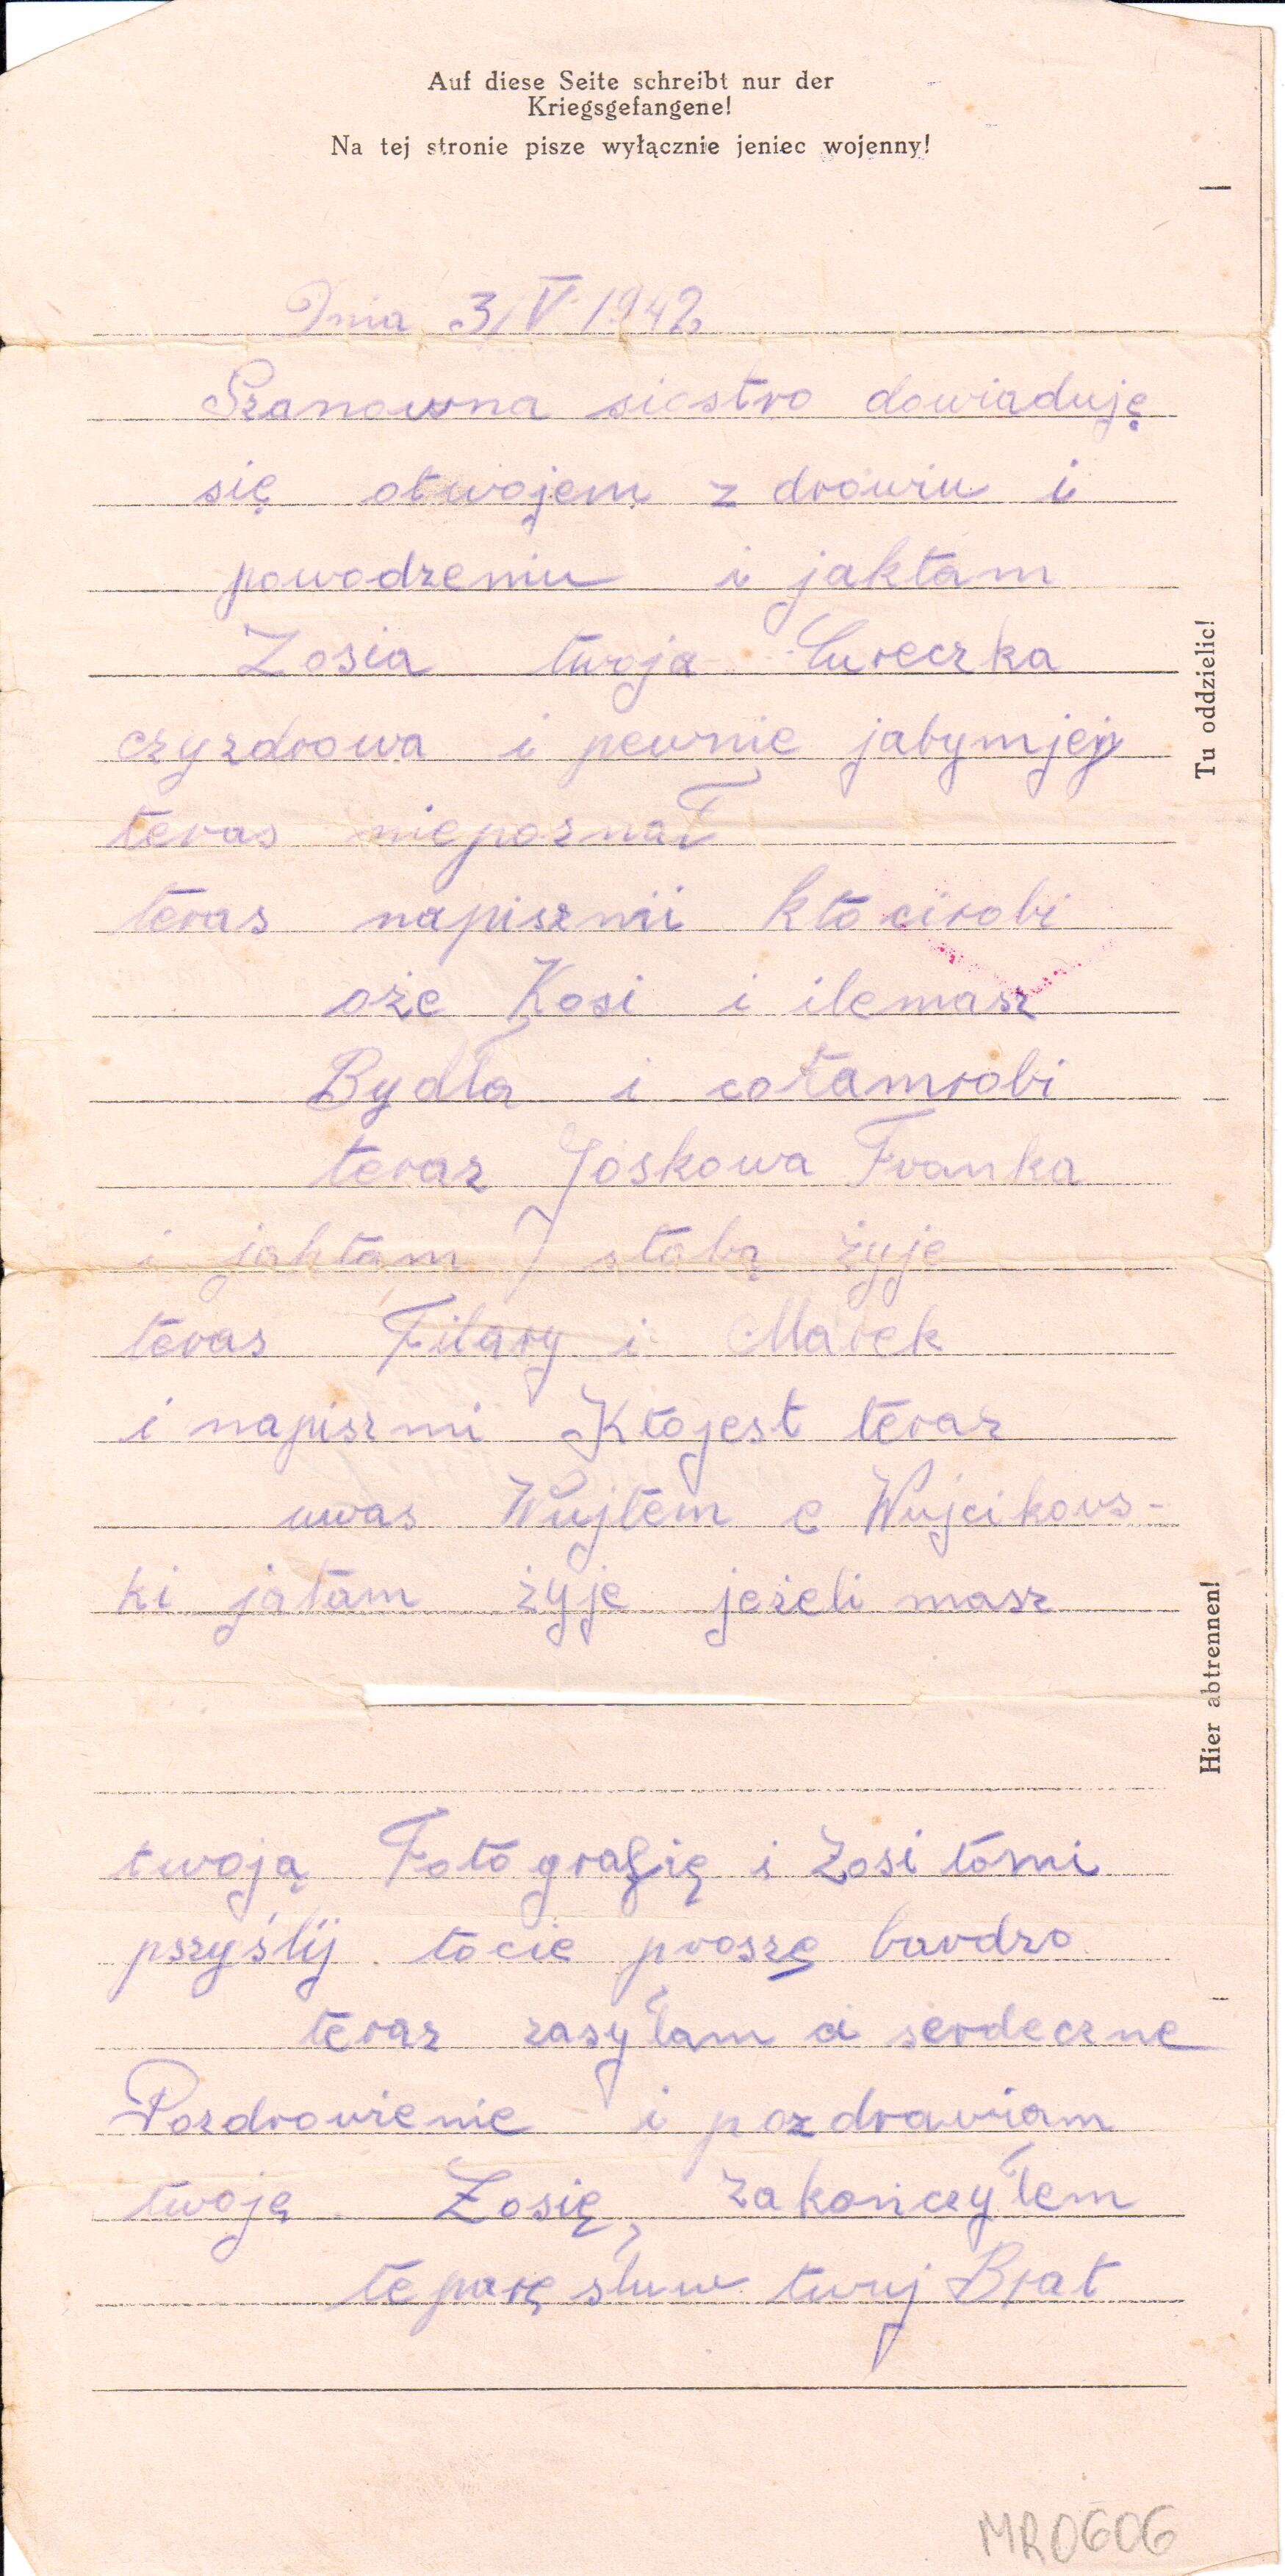 Auf diese Seite schreibt nur der
Kriegsgefangene!
Na tej stronie pisze wyłącznie jeniec wojenny!
Dnia 3/V 1942
Szanowna siostro dowiaduję
się otwojem z drowiu i
powodzeniu i jaktam
Zosia twoja Cureczka
czyzdrowa i pewnie jabymjej
teras niepoznał
teras napiszmi kto cirobi
oże Kosi i ilemasz
Bydła i cotamrobi
teraz Joskowa Franka
i jaktam stobą żyje
teras Filary i Marek
i napiszmi Ktojest teraz
uwas Wujtem e Wujcikows-
ki jatam żyje jeżeli masz
twoją Fotografię i Zosi tomi
pszyślij tocie proszę bardzo
teraz zasyłam ci serdeczne
Pozdrowienie i pozdrawiam
twoję Zosię, zakończyłem
teparę słuw twuj Brat
Tu oddzielic!
Hier abtrennen!
MR0606